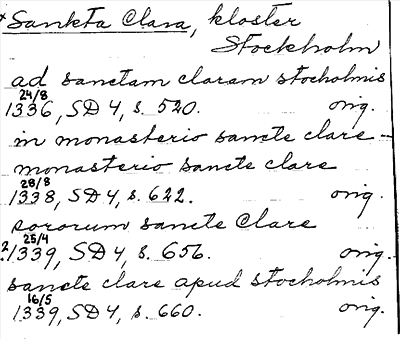 Sankta Clara, kloster
Stockholm
ad sanctam claram stocholmis
24/8
1336, SD 4, s. 520. orig.
in monasterio sancte clare -
monasterio sancte clare
28/8
1338, SD 4, s. 622. orig.
sororum sancte Clare
25/4
1339, SD 4, s. 656. orig.
sancte clare apud stocholmis
16/5
1339, SD 4, s. 660. orig.